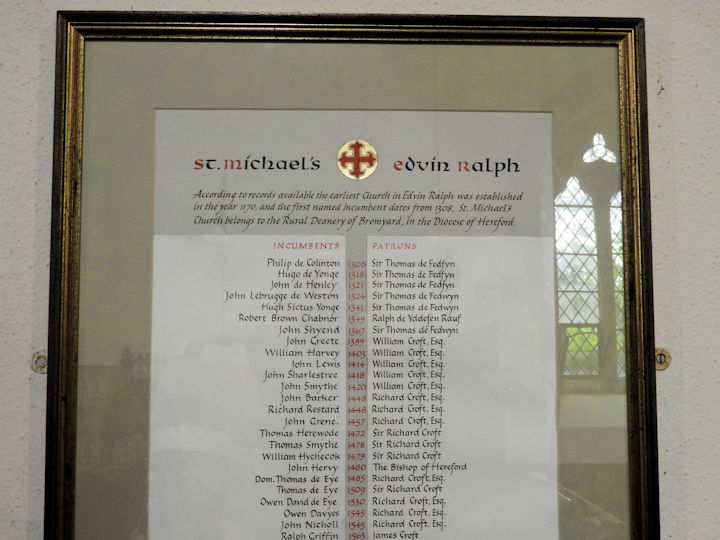 St. Michael's Edvin Ralph
According to records available the earliest Church in Edvin Ralph was established
in the year 1170, and the first named Incumbent dates from 1308. St. Michael's
Church belongs to the Rural Deanery of Bromyard, in the Diocese of Hereford.
INCUMBENTS PATRONS
Philip de Colinton 1308 Sir Thomas de Fedfyn
Hugo de Yonge 1318 Sir Thomas de Fedfyn
John de Henley 1321 Sir Thomas de Fedfyn
John Lebrugge de Weston 1324 Sir Thomas de Fedwyn
Hugh Sictus Yonge 1341 Sir Thomas de Fedwyn
Robert Brown Chabnor 1349 Ralph de Yddefen Rauf
John Shyend 1367 Sir Thomas de Fedwyn
John Greete 1399 William Croft, Esq.
William Harvey 1403 William Croft, Esq.
John Lewis 1414 William Croft, Esq.
John Sharlestree 1418 William Croft, Esq.
John Smythe 1420 William Croft, Esq.
John Barker 1448 Richard Croft, Esq.
Richard Restard 1448 Richard Croft, Esq.
John Grene. 1457 Richard Croft, Esq.
Thomas Herewode 1472 Sir Richard Croft
Thomas Smythe 1478 Sir Richard Croft
William Hychecok 1479 Sir Richard Croft
John Hervy 1480 The Bishop of Hereford
Dom. Thomas de Eye 1485 Richard Croft, Esq.
Thomas de Eye 1509 Sir Richard Croft
Owen David de Eye 1530 Richard Croft, Esq.
Owen Davyes 1545 Richard Croft, Esq.
John Nicholl 1545 Richard Croft, Esq.
Ralph Griffin 1563 James Croft